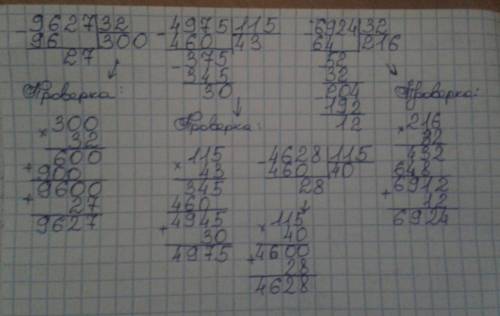 -9627|32
96   |300
27
Проверка:
×300
32
+600
900
+9600
27
9627
-4975|115
460 |43
-375
345
30
Проверка:
×115
43
345
460
+4945
30
4975
-4628|115
460 |40
28
×115
40
+4600
28
4628
-6924|32
64  |216
52
32
-204
192
12
Проверка:
×216
32
432
648
+6912
12
6924